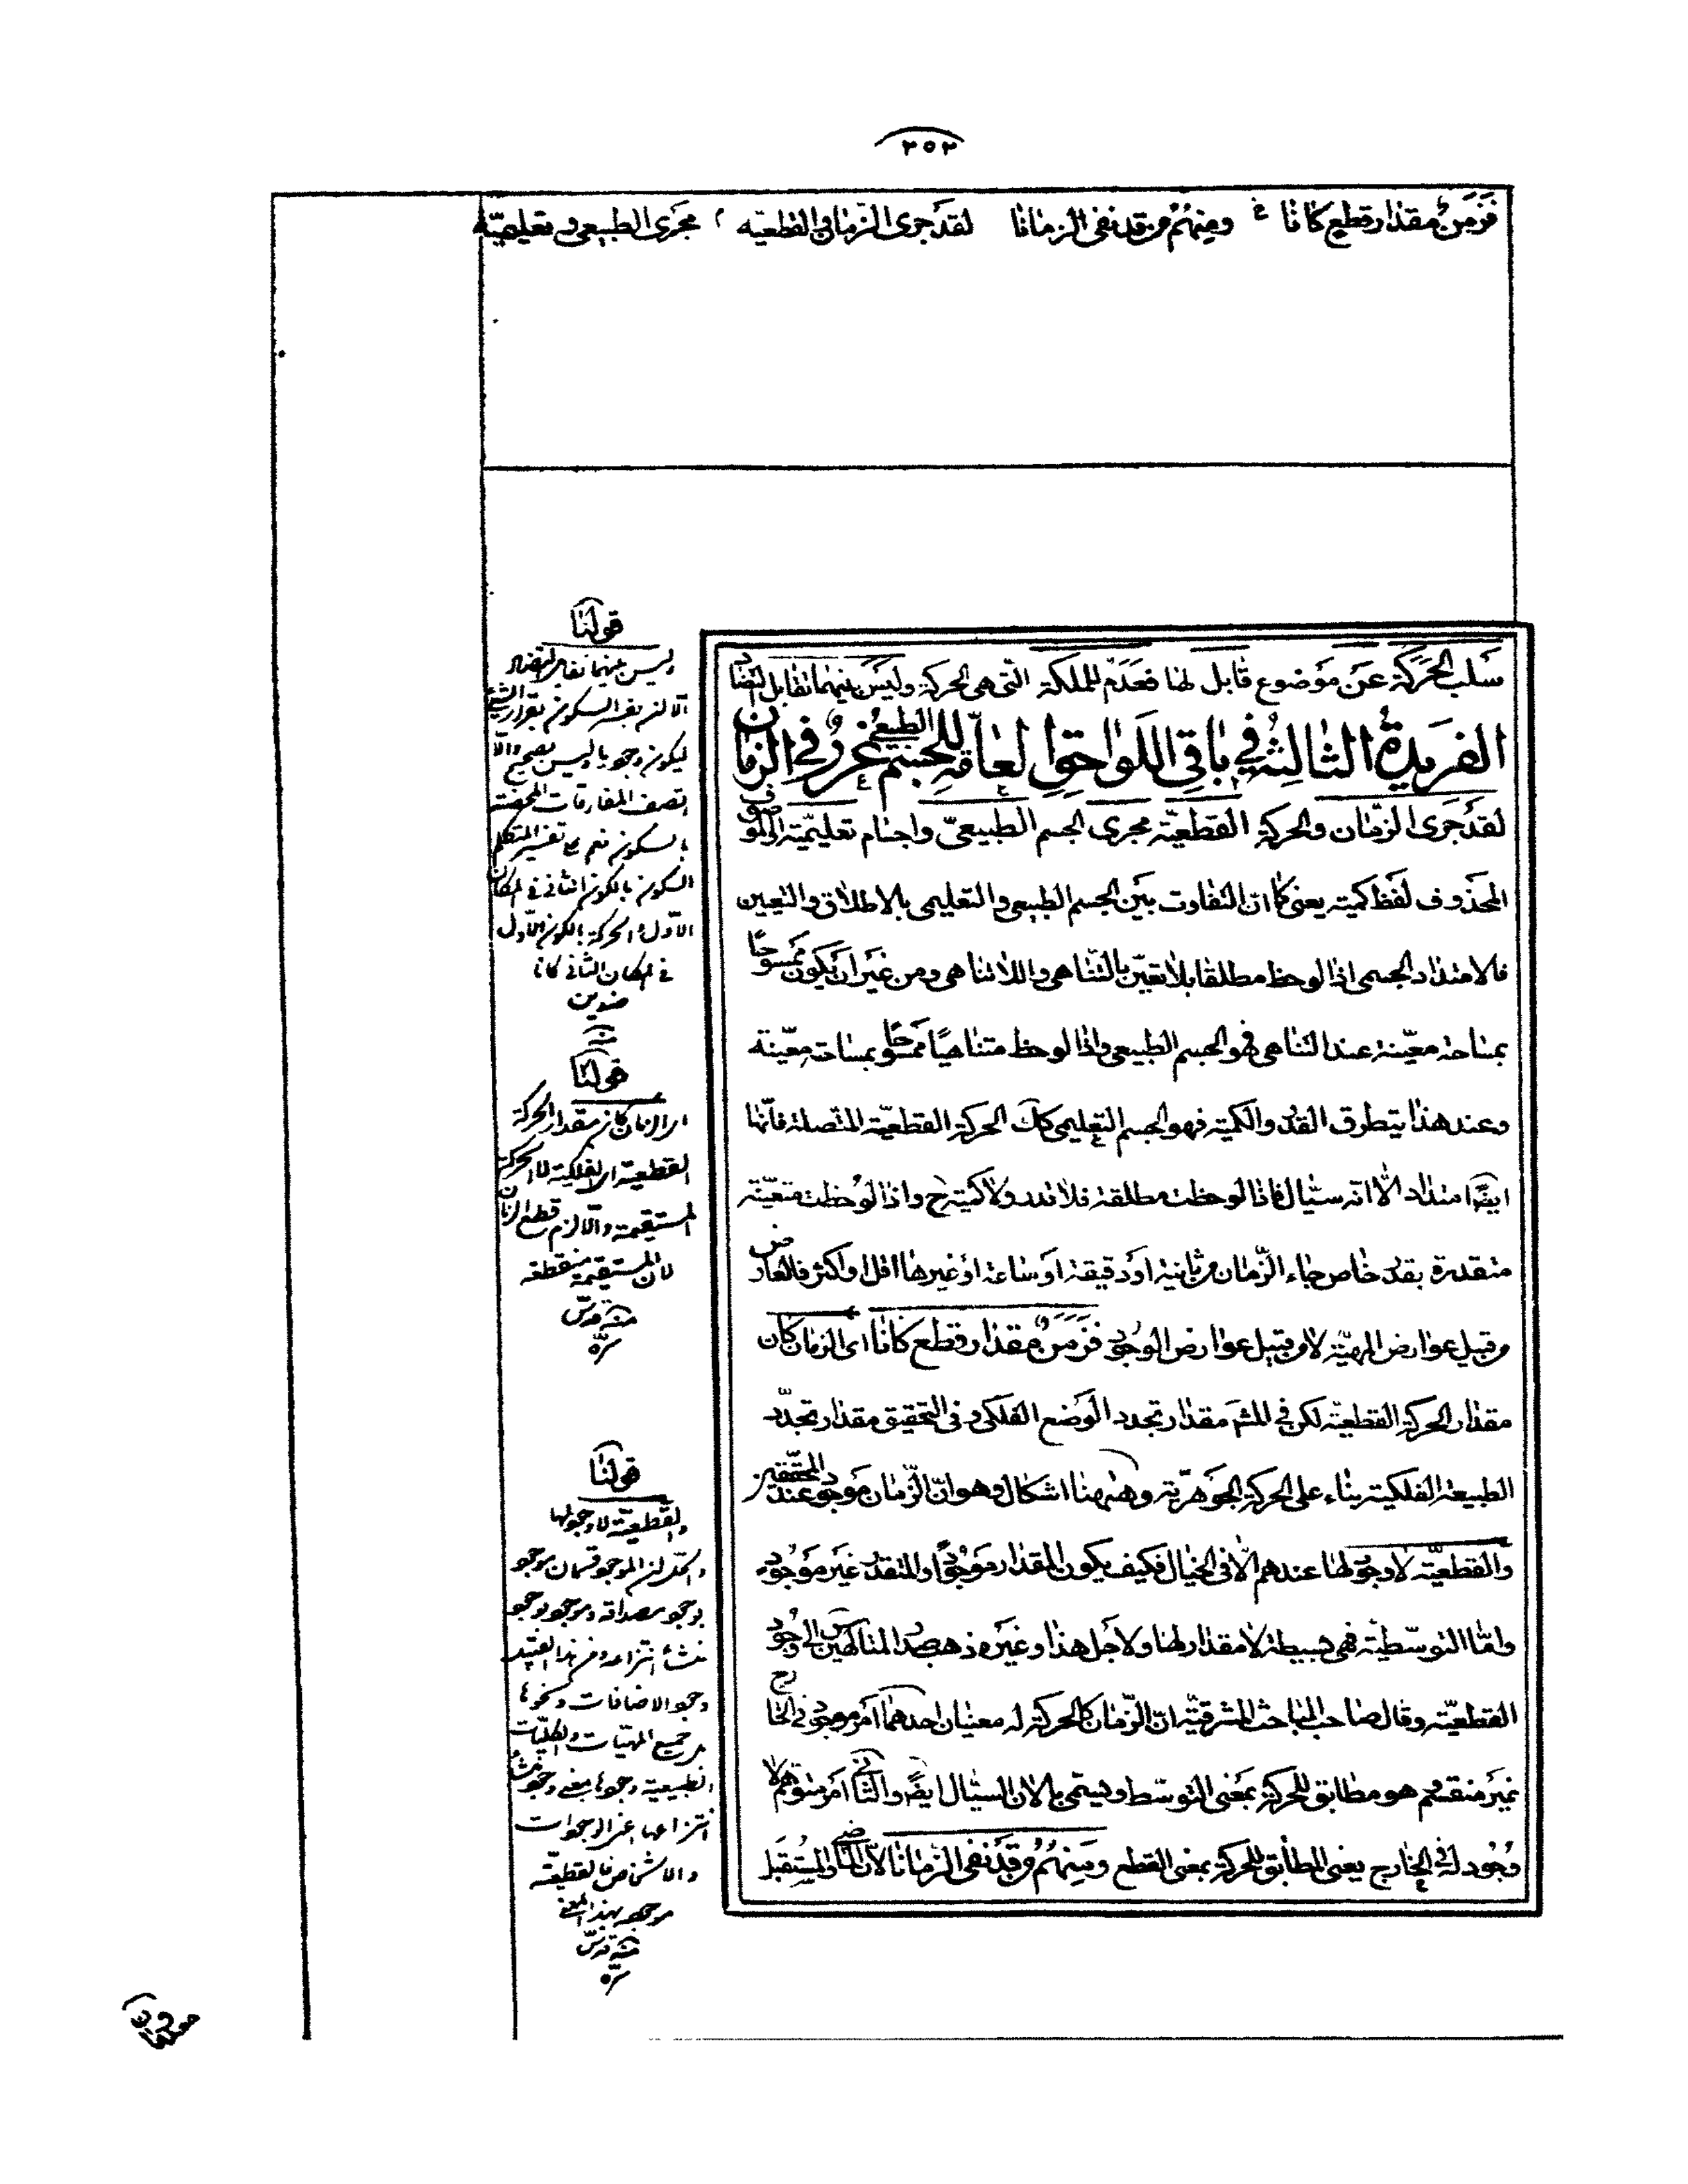 ٢٥٢
لقد جرى الزمان والقطعيه مجرى الطبيعى وتعليميّه
فزمن مقدار قطع كانا ومنهم من قد نفى الزمانا
سلب الحركة عن موضوع قابل لها فعدم للملكة التى هى الحركة وليس بينهما تقابل التضاد
الفريدة الثالثة فى باقى اللواحق العامّة للجسم الطبيعى غرر فى الزمان
لقد جرى الزمان والحركة القطعيّة مجرى الجسم الطبيعىّ واجسام تعليميّة او الموصوف
المحذوف لفظ كميته يعنى كما ان التفاوت بين الجسم الطبيعى والتعليمى بالاطلاق والتعيين
فالامتداد الجسمى اذا لوحظ مطلقا بلا تعيّن بالتناهى واللاتناهى ومن غير ان يكون ممسوحا
بمساحة معيّنة عند التناهى فهو الجسم الطبيعى واذا لوحظ متناهيا ممسوحا بمساحة معيّنة
وعند هذا يتطرق القدر والكمية فهو الجسم التعليمى كك الحركة القطعيّة المتصلة فانّها
ايضا امتداد الّا انّه سيّال فاذا لوحظت مطلقة فلا قدر ولا كمية ح واذا لوحظت متعيّنة
متقدرة بقدر خاص جاء الزّمان من ثانية او دقيقة او ساعة او غيرها اقل او اكثر فالعارض
من قبيل عوارض المهيّة لا من قبيل عوارض الوجود فزمن مقدار قطع كانا اى الزمان كان
مقدار الحركة القطعيّة لكن فى المشهور مقدار تجدد الوضع الفلكى وفى التحقيق مقدار تجدّد
الطبيعة الفلكية بناء على الحركة الجوهريّة وههنا اشكال وهو انّ الزّمان موجود عند المحققين
والقطعيّة لا وجود لها عندهم الّا فى الخيال فكيف يكون المقدار موجودا والمتقدر غير موجود
وامّا التوسّطيّة فهى بسيطة لا مقدار لها ولاجل هذا وغيره ذهب صدر المتالهين س الى وجود
القطعيّة وقال صاحب المباحث المشرقيّة انّ الزّمان كالحركة له معنيان احدهما امر موجود فى الخارج
غير منقسم هو مطابق للحركة بمعنى التوسّط ويسمّى بالان السيّال ايضا والثانى امر متوهّم لا
وجود له فى الخارج يعنى المطابق للحركة بمعنى القطع ومنهم من قد نفى الزمانا لانّ الماضى والمستقبل
قولنا
وليس بينهما تقابل التضاد
الّا لزم تفسير السكون بقرار الشىء
ليكون وجوديا وليس بصحيح والّا
اتصف المفارقات المحضة
بالسكون نعم على تفسير المتكلم
السكون بالكون الثانى فى المكان
الاوّل والحركة بالكون الاوّل
فى المكان الثانى كانا
ضدين
منه
قولنا
اى الزمان كان مقدار الحركة
القطعية اى الفلكية لا الحركة
المستقيمة والّا لزم قطع الزمان
لان المستقيمة منقطعة
منه قدس
سرّه
قولنا
والقطعيّة لا وجود لها
والحل ان الموجود قسمان موجود
بوجود مصداقه وموجود بوجود
منشأ انتزاعه ومن هذا القبيل
وجود الاضافات ونحوها
من جميع المهيّات والكليّات
الطبيعية وجودها بمعنى وجود منشأ
انتزاعها اعنى الوجودات
والاشخاص فالقطعيّة
موجودة بهذا المعنى
منه قدس
سرّه